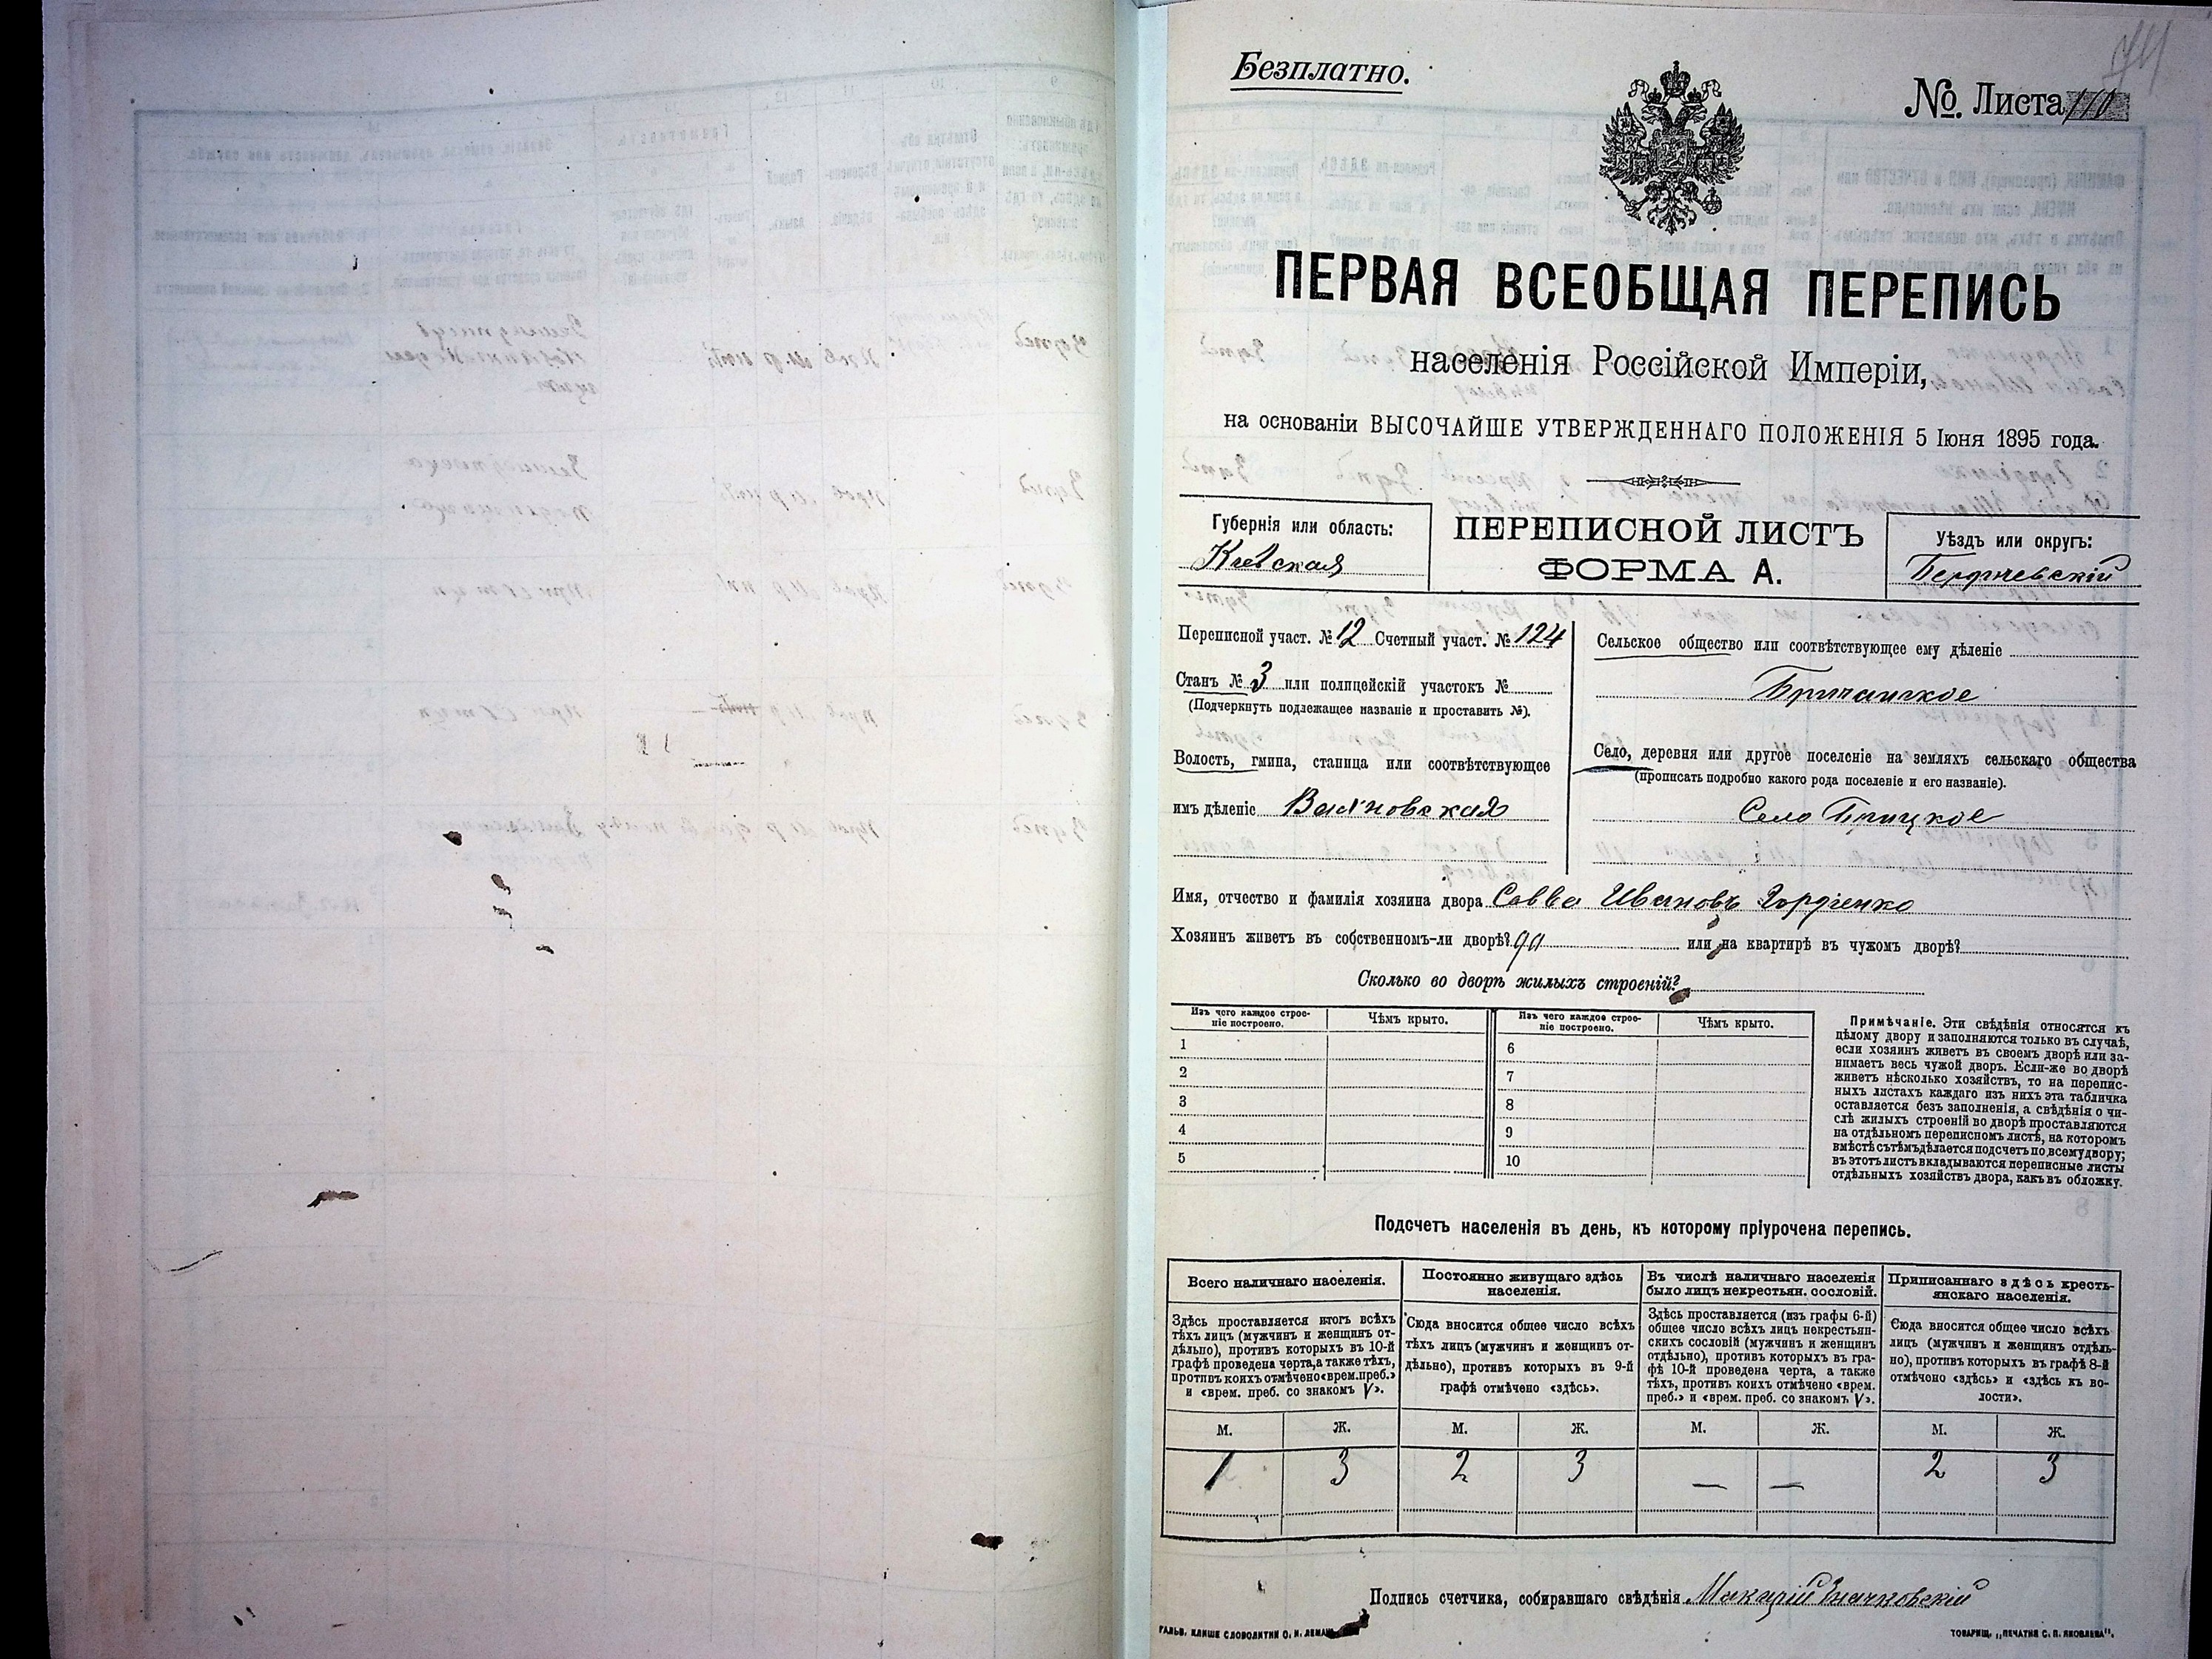 Безплатно.
№. Листа 110
ПЕРВАЯ ВСЕОБЩАЯ ПЕРЕПИСЬ
населенія Россійской Имперіи,
на основаніи ВЫСОЧАЙШЕ УТВЕРЖДЕННАГО ПОЛОЖЕНІЯ 5 Іюня 1895 года.
Губернія или область:
Кіевская
ПЕРЕПИСНОЙ ЛИСТЪ
ФОРМА А.
Уѣздъ или округъ:
Бердичевскій
Переписной участ. № 12 Счетный участ. № 124
Станъ № 3 или полицейскій участокъ №
(Подчеркнуть подлежащее названіе и проставить №).
Волость, гмина, станица или соотвѣтствующее
имъ дѣленіе
Сельское общество или соотвѣтствующее ему дѣленіе
Село, деревня или другое поселеніе на земляхъ сельскаго общества
(прописать подробно какого рода поселеніе и его названіе).
Село Брицкое
Имя, отчество и фамилія хозяина двора Савва Ивановъ Гордіенко
Хозяинъ живетъ въ собственномъ-ли дворѣ? да или на квартирѣ въ чужомъ дворѣ?
Сколько во дворѣ жилыхъ строеній?
Изъ чего каждое строе-
ніе построено.
Чѣмъ крыто.
Изъ чего каждое строе-
ніе построено.
Чѣмъ крыто.
1
2
3
4
5
6
7
8
9
10
Примѣчаніе. Эти свѣдѣнія относятся къ
цѣлому двору и заполняются только въ случаѣ,
если хозяинъ живетъ въ своемъ дворѣ или за-
нимаетъ весь чужой дворъ. Если-же во дворѣ
живетъ нѣсколько хозяйствъ, то на перепис-
ныхъ листахъ каждаго изъ нихъ эта табличка
оставляется безъ заполненія, а свѣдѣнія о чи-
слѣ жилыхъ строеній во дворѣ проставляются
на отдѣльномъ переписномъ листѣ, на которомъ
вмѣстѣ съ тѣмъ дѣлается подсчетъ по всему двору;
въ этотъ листъ вкладываются переписные листы
отдѣльныхъ хозяйствъ двора, какъ въ обложку.
Подсчетъ населенія въ день, къ которому пріурочена перепись.
Всего наличнаго населенія.
Здѣсь проставляется итогъ всѣхъ
тѣхъ лицъ (мужчинъ и женщинъ от-
дѣльно), противъ которыхъ въ 10-й
графѣ проведена черта, а также тѣхъ,
противъ коихъ отмѣчено «врем. преб.»
и «врем. преб. со знакомъ V».
Постоянно живущаго здѣсь
населенія.
Сюда вносится общее число всѣхъ
тѣхъ лицъ (мужчинъ и женщинъ от-
дѣльно), противъ которыхъ въ 9-й
графѣ отмѣчено «здѣсь».
Въ числѣ наличнаго населенія
было лицъ некрестьян. сословій.
Здѣсь проставляется (изъ графы 6-й)
общее число всѣхъ лицъ некрестьян-
скихъ сословій (мужчинъ и женщинъ
отдѣльно), противъ которыхъ въ гра-
фѣ 10-й проведена черта, а также
тѣхъ, противъ коихъ отмѣчено «врем.
преб.» и «врем. преб. со знакомъ V».
Приписаннаго здѣсь кресть-
янскаго населенія.
Сюда вносится общее число всѣхъ
лицъ (мужчинъ и женщинъ отдѣль-
но), противъ которыхъ въ графѣ 8-й
отмѣчено «здѣсь» и «здѣсь къ во-
лости».
М. Ж. М. Ж. М. Ж. М. Ж.
1 3 2 3 — — 2 3
Подпись счетчика, собиравшаго свѣдѣнія
ГАЛЬВ. КЛИШЕ СЛОВОЛИТНИ О. И. ЛЕМАН
ТОВАРИЩ. „ПЕЧАТНЯ С. П. ЯКОВЛЕВА".